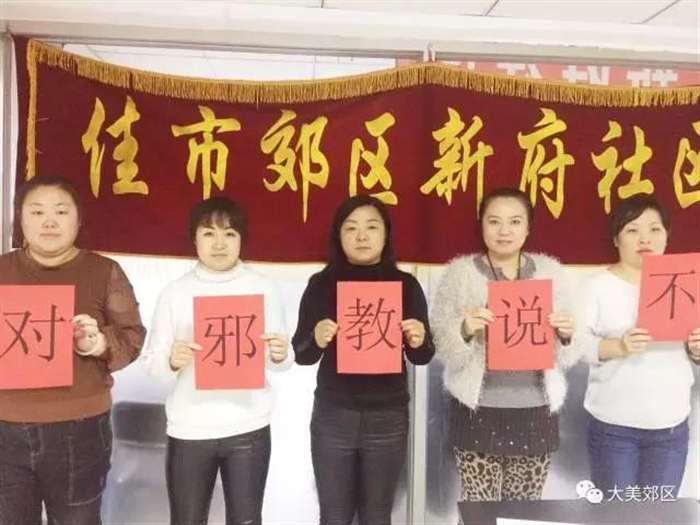 佳市郊区新府社区
对邪教说不
大美郊区